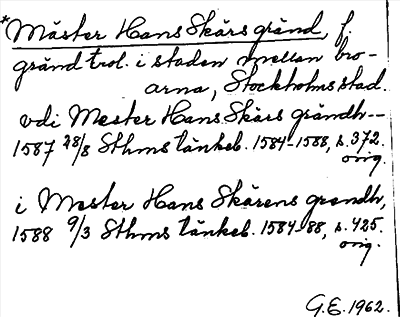 *Mäster Hans Skärs gränd, f.
gränd trol. i staden mellan bro-
arna, Stockholms stad.
vdi Mester Hans Skärs grändh--
1587 28/8 Sthms tänkeb. 1584-1588, s. 372.
orig.
i Mester Hans Skärens grendh,
1588 9/3 Sthms tänkeb. 1584-88, s. 425.
orig.
G.E. 1962.